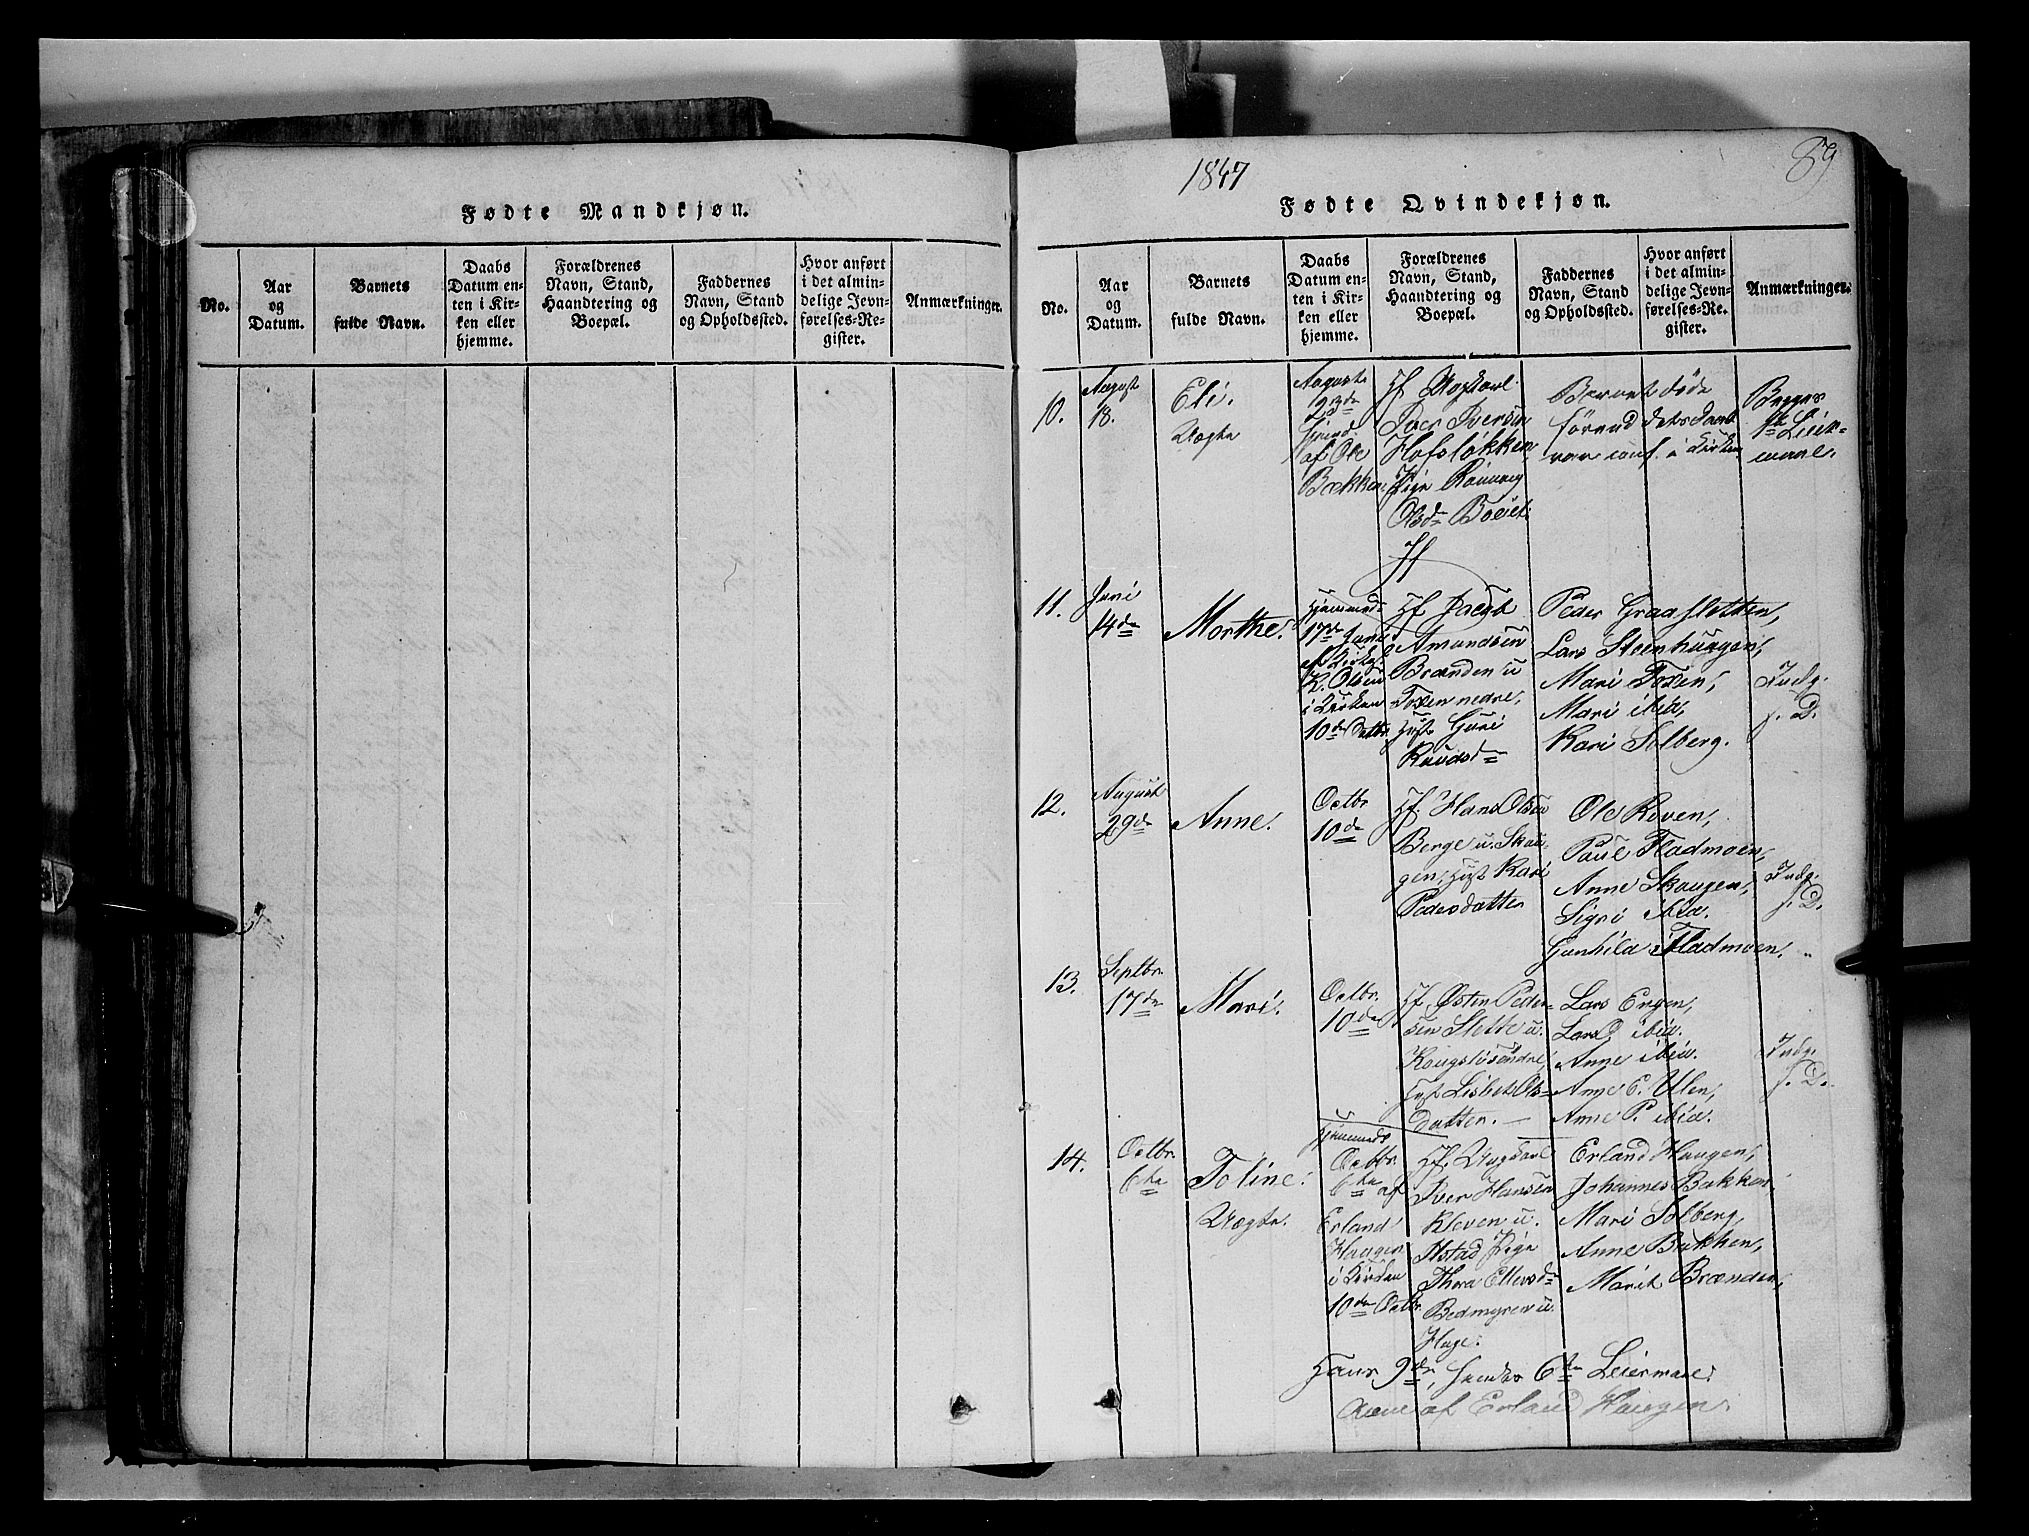 1847
89
Fødte Mandkjøn.
No.
Aar og Datum.
Barnets fulde Navn.
Daabs Datum enten i Kirken eller hjemme.
Forældrenes Navn, Stand, Haandtering og Boepæl.
Faddernes Navn, Stand og Opholdssted.
Hvor anført i det almindelige Jevnførelses-Register.
Anmærkninger.
Fødte Qvindekjøn.
No.
Aar og Datum.
Barnets fulde Navn.
Daabs Datum enten i Kirken eller hjemme.
Forældrenes Navn, Stand, Haandtering og Boepæl.
Faddernes Navn, Stand og Opholdssted.
Hvor anført i det almindelige Jevnførelses-Register.
Anmærkninger.
10.
August
18.
Eli.
Uægte
August
23de
af Ole
Bækken
Ungkarl
Iver Iversen
Hofsløkken
Pige Rønnoug
Olsd Bövet
Barnet døde
förend dets Daab
var conf. i Kirken
Begges
1te Leier-
maal.
11.
Juni
14de
Marthe.
Hjemmed.
17de Juni
K. Olsen
i Kirken
10de Octbr.
Hf. Jacob
Amundsen
Brænden u
Toxen nedre,
Hust Guri
Knudsd
Peder Graasletten,
Lars Steenhaugen,
Mari Toxen,
Mari ibid,
Kari Solberg.
Indg.
f. D.
12.
August
29de
Anne.
Octbr
10de
Hf. Hans Olsen
Berge u. Skou-
gen, Hust Kari
Pedersdatter
Ole Roven,
Paul Fladmoen,
Anne Skougen,
Sigri ibid.
Gunhild Fladmoen,
Indg.
f. D.
13.
Septbr.
17de
Mari.
Octbr.
10de
Hf. Østen Peder-
sen Slette u.
Kongsli söndre,
Hust Lisbet Ols-
datter.
Lars Engen,
Lars ibid.
Anne ibid.
Anne E. Ulen,
Anne P. ibid.
Indg.
f. D.
14.
Octbr.
6te
Toline.
Uægte.
Hjemmed
Octbr.
6te af
Erland
Haugen
i Kirken
10de Octbr.
Hf. Ungkarl
Iver Hansen
Kleven u.
Ilstad Pige
Thora Ellevsd
Bedmyren u
Hage.
Erland Haugen,
Johannes Bakken,
Mari Solberg,
Anne Bakken,
Marit Brænden,
Hans 9de, hendes 6te Leiermaal.
af Erland Haugen.